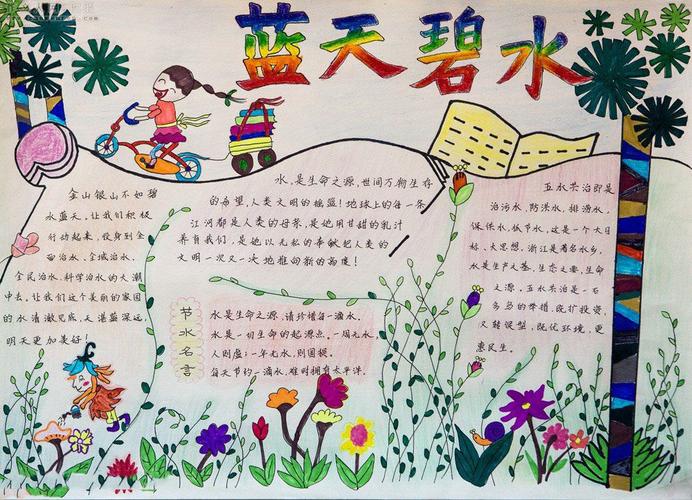 蓝天碧水
金山银山不如碧
水蓝天,让我们积极
行动起来,投身到全
面治水、全域治水、
全民治水、科学治水的大潮
中去,让我们这个美丽的家园
的水清澈见底,天湛蓝深远
明天更加美好!
水,是生命之源,世间万物生存
的希望,人类文明的摇篮!地球上的每一条
江河都是人类的母亲,是她用甘甜的乳汁
养育我们,是她以无私的奉献把人类的
文明一次又一次地推向新的高度!
节水名言
水是生命之源,请珍惜每一滴水。
水是一切生命的起源点。一周无水,
人则虚;一年无水,则国損。
每天节约一滴水,难时拥有太平洋。
五水共治即是
治污水,防洪水,排涝水,
保供水,抓节水,这是一个大目
标、大思想。浙江是著名水乡,
水是生产之基,生态之要,生命
之源,五水共治是一石
多鸟的举措,既扩投资,
又转促型,既优环境,更
惠民生。